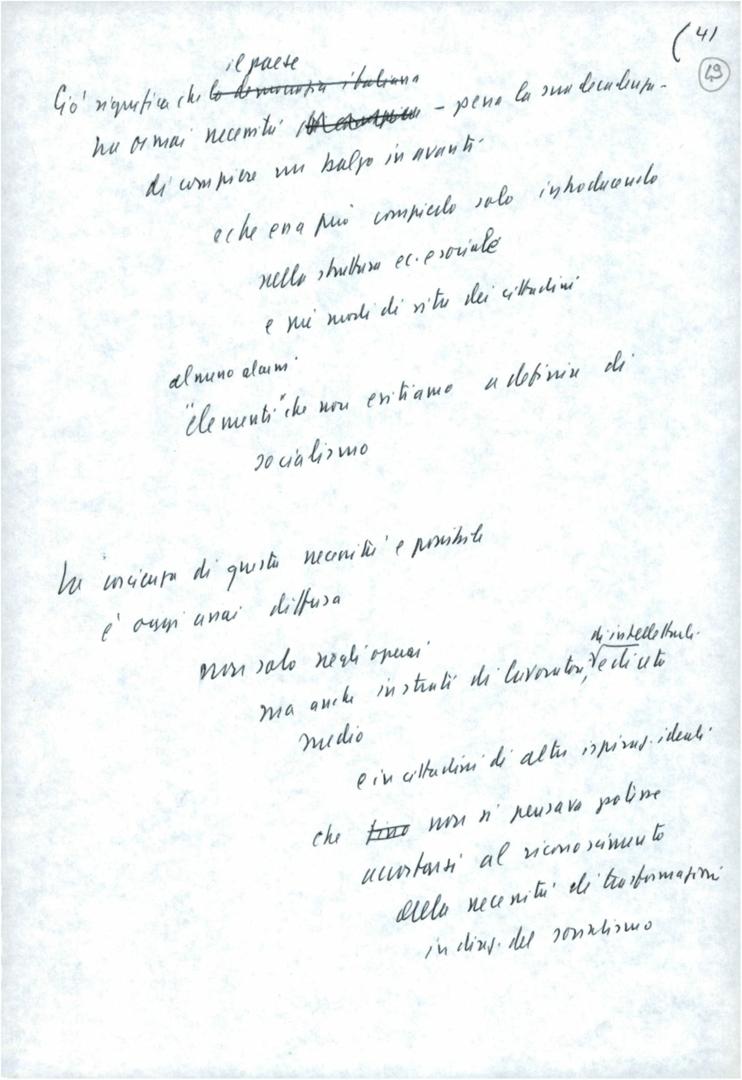 (41
49
il paese
Ciò significa che la democrazia italiana
ha ormai necessità – pena la sua decadenza –
di compiere un balzo in avanti
e che essa può compierlo solo introducendo
nella struttura ec. e sociale
e nei modi di vita dei cittadini
almeno alcuni
"elementi" che non esitiamo a definire di
socialismo
La coscienza di questa necessità e possibilità
è oggi assai diffusa
non solo negli operai
di intellettuali
ma anche in strati di lavoratori, e di ceto
medio
e in cittadini di altre ispiraz. ideali
che fino non si pensava potesse
accostarsi al riconoscimento
della necessità di trasformazioni
in direz. del socialismo